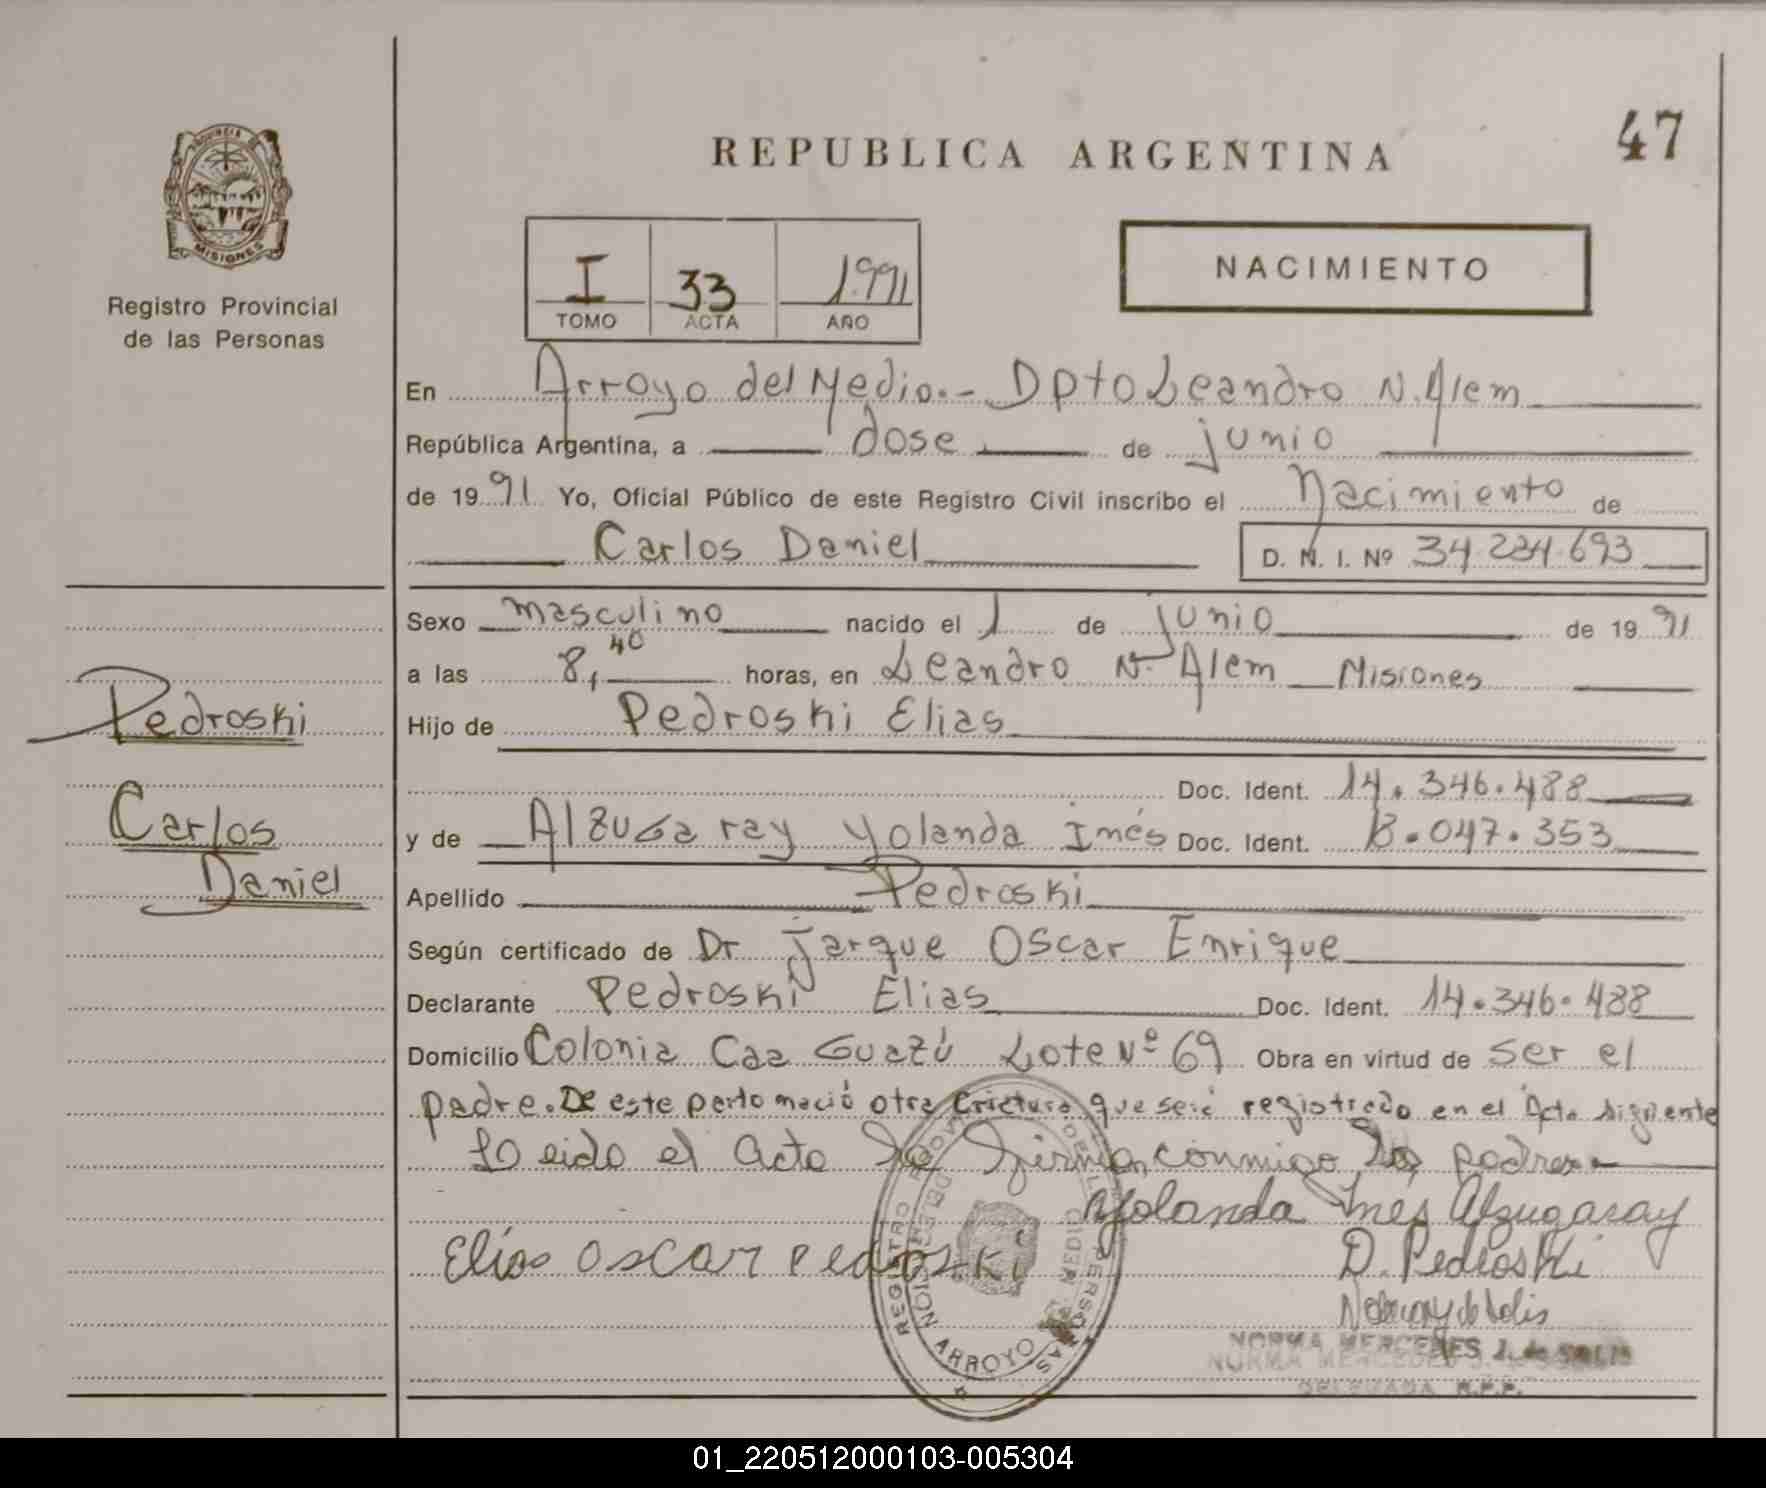 PROVINCIA DE
MISIONES
Registro Provincial
de las Personas
REPUBLICA ARGENTINA
47
I 33 1.991
TOMO ACTA AÑO
NACIMIENTO
En Arroyo del Medio.- Dpto Leandro N. Alem
República Argentina, a dose de junio
de 1991 Yo, Oficial Público de este Registro Civil inscribo el Nacimiento de
Carlos Daniel D. N. I. Nº 34.234.693
Sexo masculino nacido el 1 de junio de 1991
a las 8,40 horas, en Leandro N. Alem Misiones
Pedroski
Hijo de Pedroski Elias
Doc. Ident. 14.346.488
Carlos
y de Alzugaray Yolanda Inés Doc. Ident. 18.047.353
Daniel
Apellido Pedroski
Según certificado de Dr Jarque Oscar Enrique
Declarante Pedroski Elias Doc. Ident. 14.346.488
Domicilio Colonia Caa Guazú Lote Nº 69 Obra en virtud de ser el
padre. De este parto nació otra criatura que será registrado en el Acta siguiente
Leido el acta la firman conmigo los padres.-
Yolanda Ines Alzugaray
Elias Oscar Pedroski
D. Pedroski
NORMA MERCEDES J. de SOLIS
DELEGADA R.P.P.
REGISTRO DE LAS PERSONAS
DELEGACION ARROYO DEL MEDIO
01_220512000103-005304